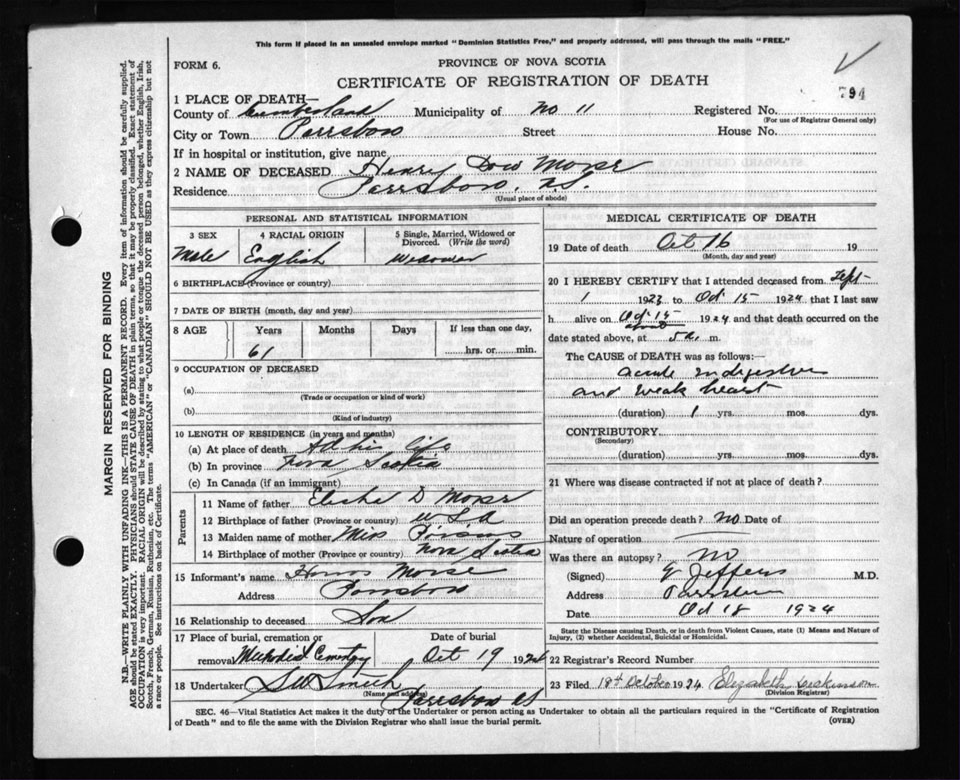 This form if placed in an unsealed envelope marked "Dominion Statistics Free," and properly addressed, will pass through the mails "FREE."
FORM 6.
PROVINCE OF NOVA SCOTIA
CERTIFICATE OF REGISTRATION OF DEATH
794
1 PLACE OF DEATH—
County of Cumberland Municipality of No 11 Registered No.
(For use of Registrar General only)
City or Town Parrsboro Street House No.
If in hospital or institution, give name
2 NAME OF DECEASED Henry Dow Morse
Residence Parrsboro. N.S.
(Usual place of abode)
PERSONAL AND STATISTICAL INFORMATION
3 SEX 4 RACIAL ORIGIN 5 Single, Married, Widowed or Divorced. (Write the word)
Male English Widower
6 BIRTHPLACE (Province or country)
7 DATE OF BIRTH (month, day and year)
8 AGE Years Months Days If less than one day,
61 hrs. or min.
9 OCCUPATION OF DECEASED
(a)
(Trade or occupation or kind of work)
(b)
(Kind of industry)
10 LENGTH OF RESIDENCE (in years and months)
(a) At place of death life
(b) In province Nova Scotia
(c) In Canada (if an immigrant)
Parents
11 Name of father Elisha D Morse
12 Birthplace of father (Province or country) U S A
13 Maiden name of mother Miss
14 Birthplace of mother (Province or country) Nova Scotia
15 Informant's name Morse
Address Parrsboro
16 Relationship to deceased Son
17 Place of burial, cremation or removal Methodist Cemetery
Date of burial Oct 19 1924
18 Undertaker S W Smith
(Name and address) Parrsboro NS
MEDICAL CERTIFICATE OF DEATH
19 Date of death Oct 16 19
(Month, day and year)
20 I HEREBY CERTIFY that I attended deceased from Sept
1 1923 to Oct 15 1924 that I last saw
h alive on Oct 15 1924 and that death occurred on the
date stated above, at about m.
The CAUSE of DEATH was as follows:
acute indigestion
and weak heart
(duration) 1 yrs. mos. dys.
CONTRIBUTORY
(Secondary)
(duration) yrs. mos. dys.
21 Where was disease contracted if not at place of death?
Did an operation precede death? no Date of
Nature of operation
Was there an autopsy? no
(Signed) Jeffers M.D.
Address Parrsboro
Date Oct 18 1924
State the Disease causing Death, or in death from Violent Causes, state (1) Means and Nature of
Injury, (2) whether Accidental, Suicidal or Homicidal.
22 Registrar's Record Number
23 Filed 18th October 1924 Elizabeth Dickinson
(Division Registrar)
SEC. 46—Vital Statistics Act makes it the duty of the Undertaker or person acting as Undertaker to obtain all the particulars required in the "Certificate of Registration
of Death" and to file the same with the Division Registrar who shall issue the burial permit.
(OVER)
MARGIN RESERVED FOR BINDING
N.B.—WRITE PLAINLY WITH UNFADING INK—THIS IS A PERMANENT RECORD. Every item of information should be carefully supplied.
AGE should be stated EXACTLY. PHYSICIANS should STATE CAUSE OF DEATH in plain terms, so that it may be properly classified. Exact statement of
OCCUPATION is very important. RACIAL ORIGIN will be described by stating to what people or tongue the deceased person belonged, whether English, Irish,
Scotch, French, German, Russian, Ruthenian, etc. The terms "AMERICAN" or "CANADIAN" SHOULD NOT BE USED as they express citizenship but not
a race or people. See instructions on back of Certificate.